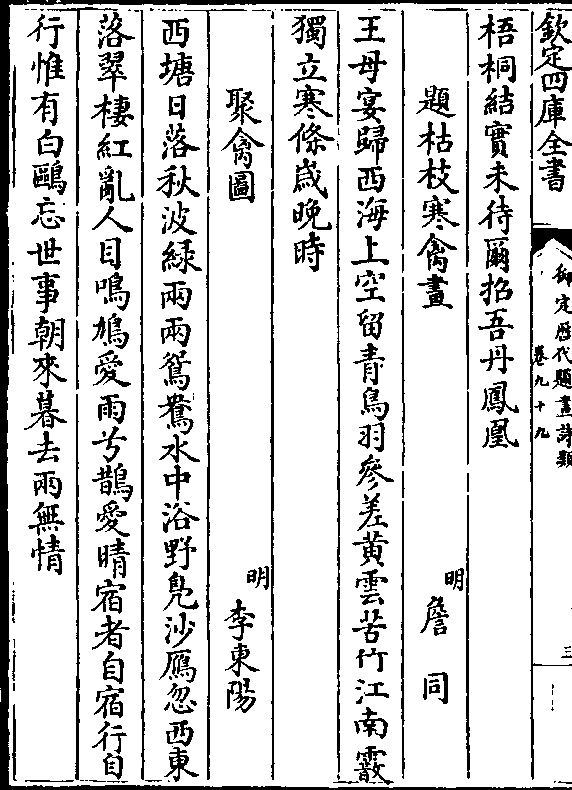 欽定四庫全書
御定歷代題畫詩類
卷九十九
三
梧桐結實未待爾招吾丹鳳凰
題枯枝寒禽畫
明 詹同
王母宴歸西海上空留青鳥羽參差黄雲苦竹江南霰
獨立寒條歲晚時
聚禽圖
明 李東陽
西塘日落秋波緑兩兩鴛鴦水中浴野鳬沙鴈忽西東
落翠棲紅亂人目鳴鳩愛雨兮鵲愛晴宿者自宿行自
行惟有白鷗忘世事朝來暮去兩無情